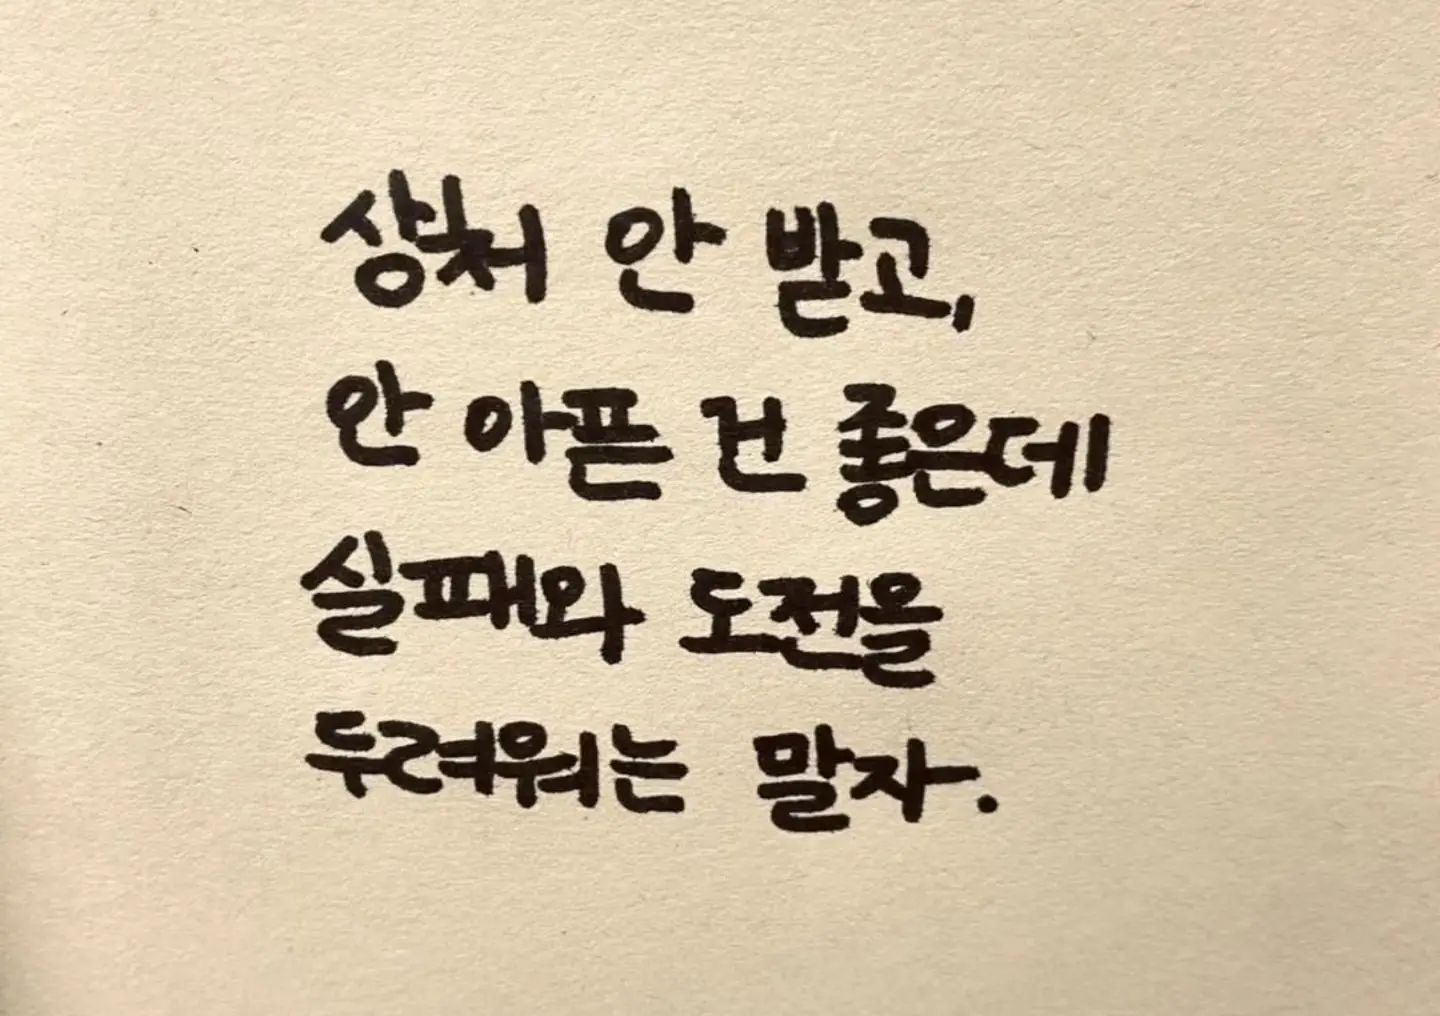 상처 안 받고,
안 아픈 건 좋은데
실패와 도전을
두려워는 말자.